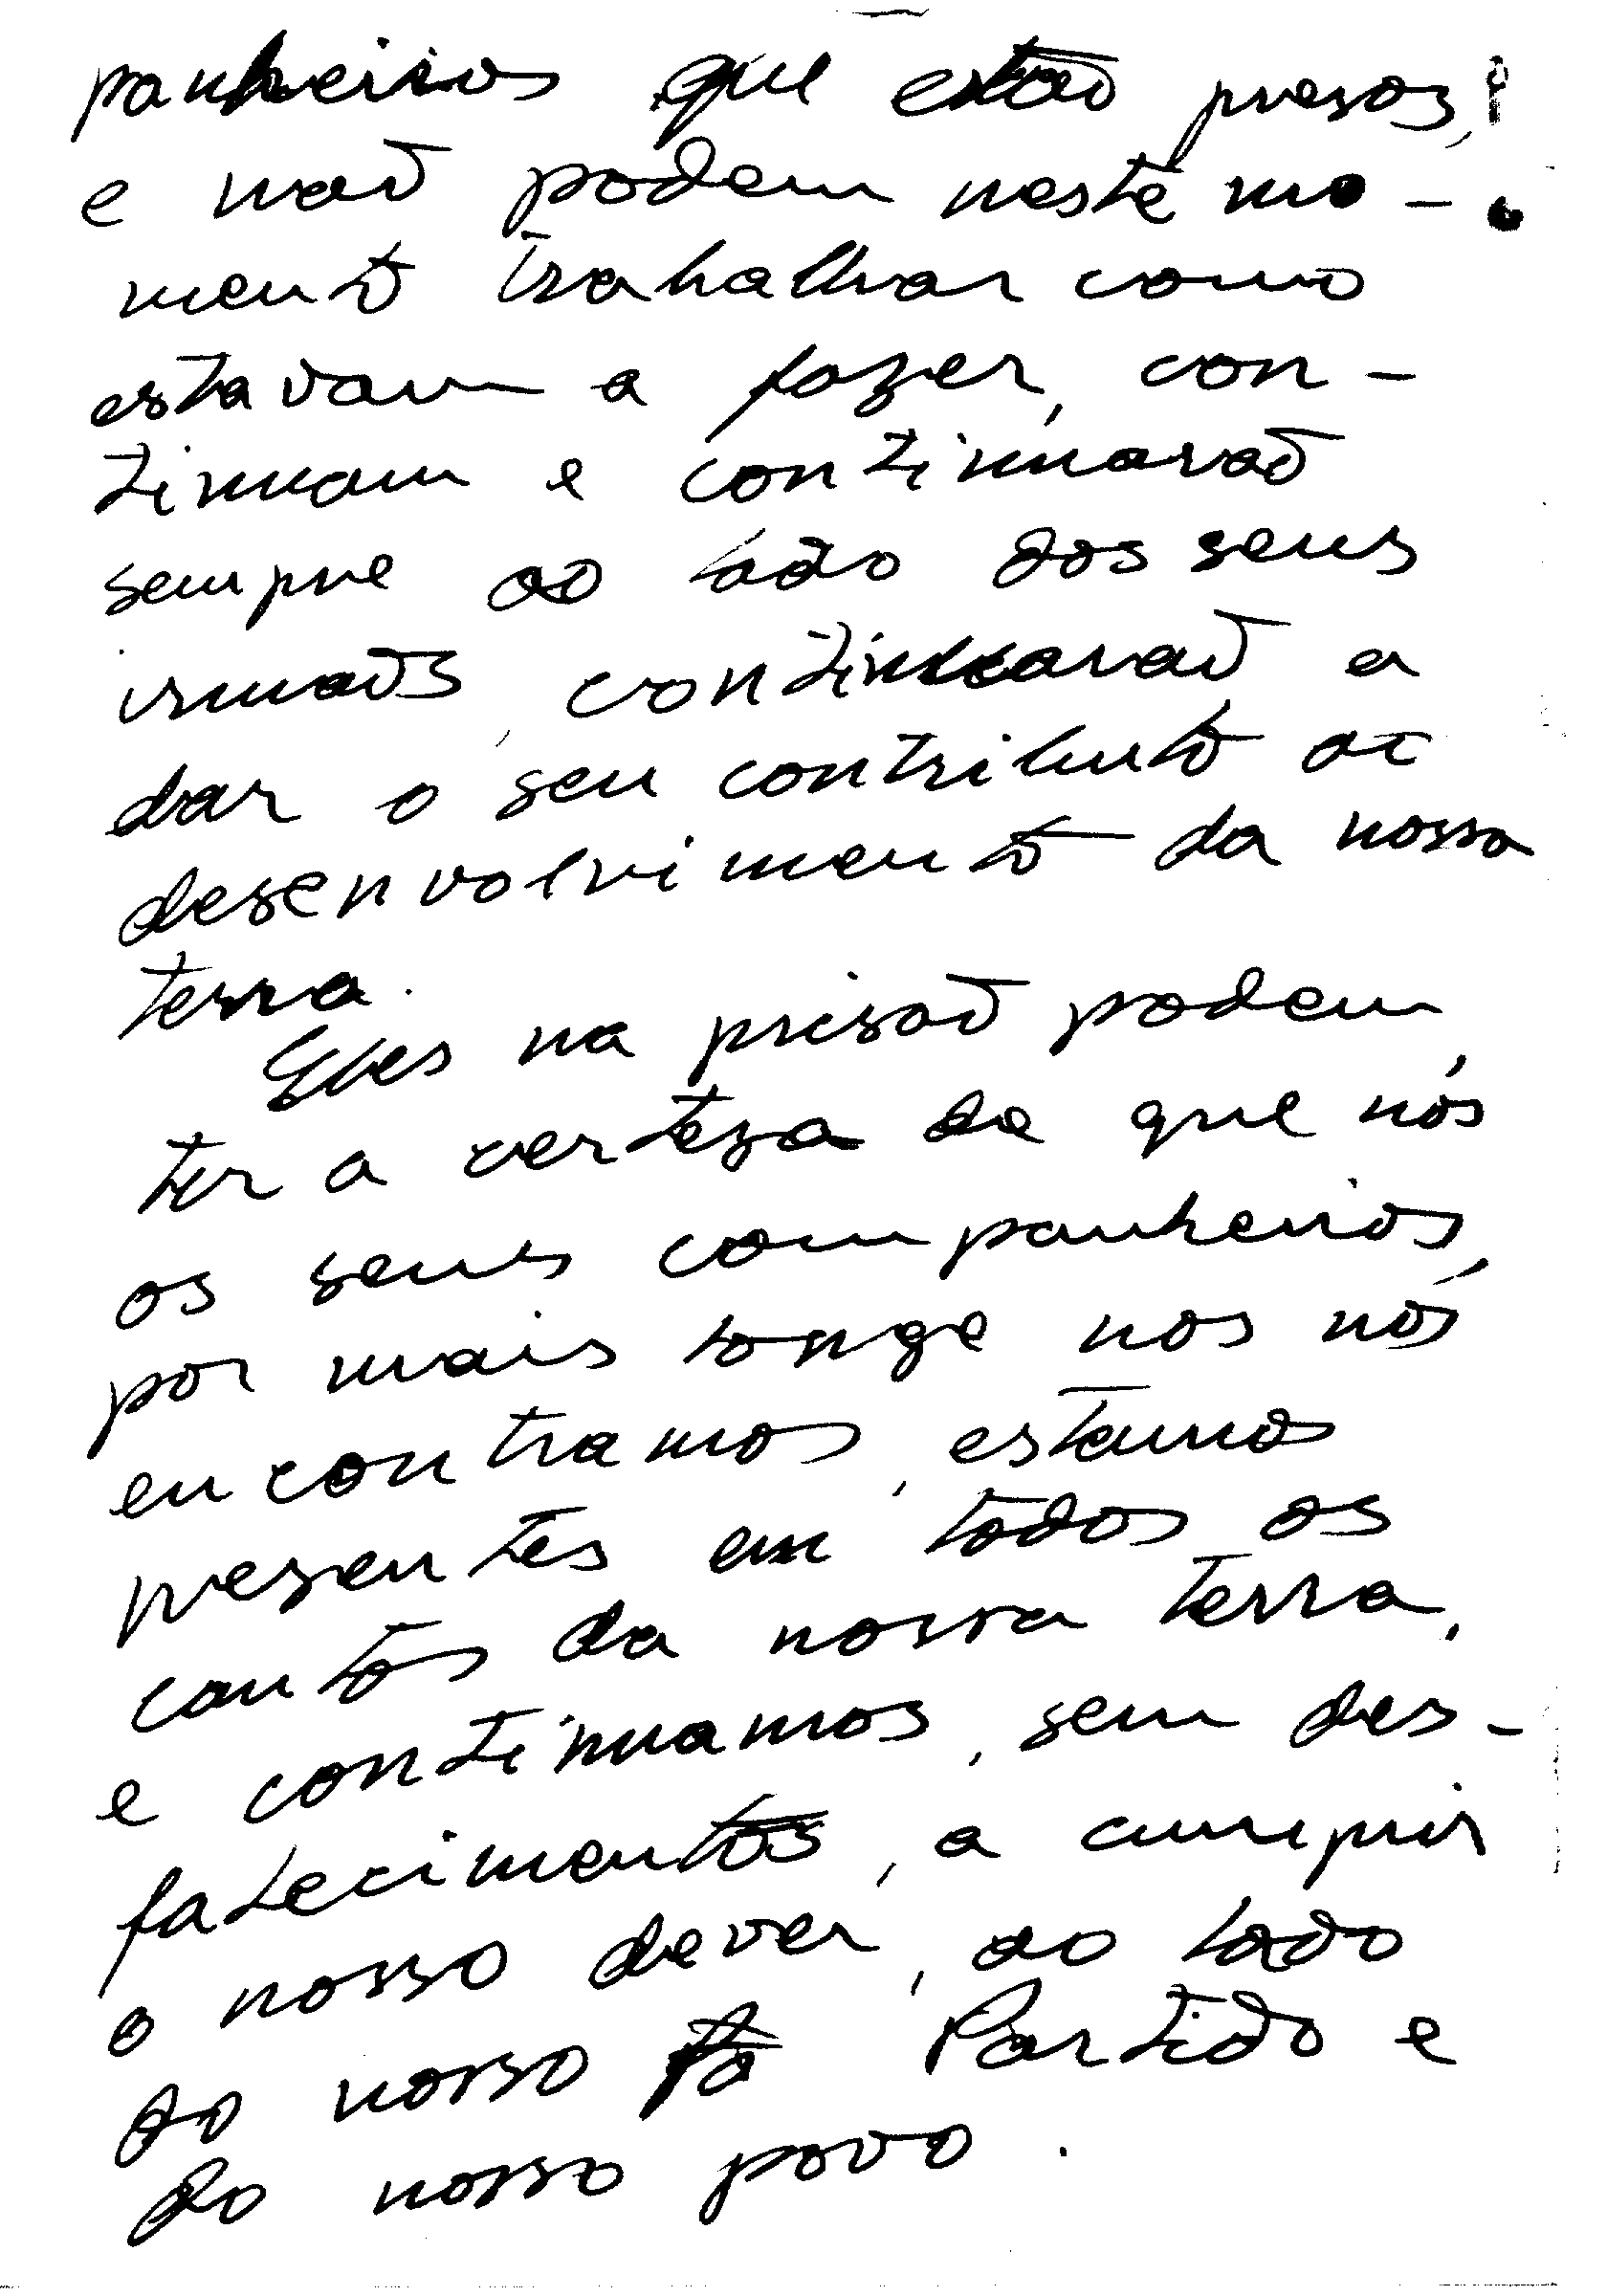 panheiros que estão presos,
e não podem neste mo-
mento trabalhar como
estavam a fazer, con-
tinuam e continuarão
sempre ao lado dos seus
irmãos, continuarão a
dar o seu contributo ao
desenvolvimento da nossa
terra.
Eles na prisão podem,
ter a certeza de que nós
os seus companheiros,
por mais longe nos nós
encontramos, estamos
presentes em todos os
cantos da nossa terra,
e continuamos, sem des-
falecimentos, a cumprir
o nosso dever, ao lado
do nosso Partido e
do nosso povo.